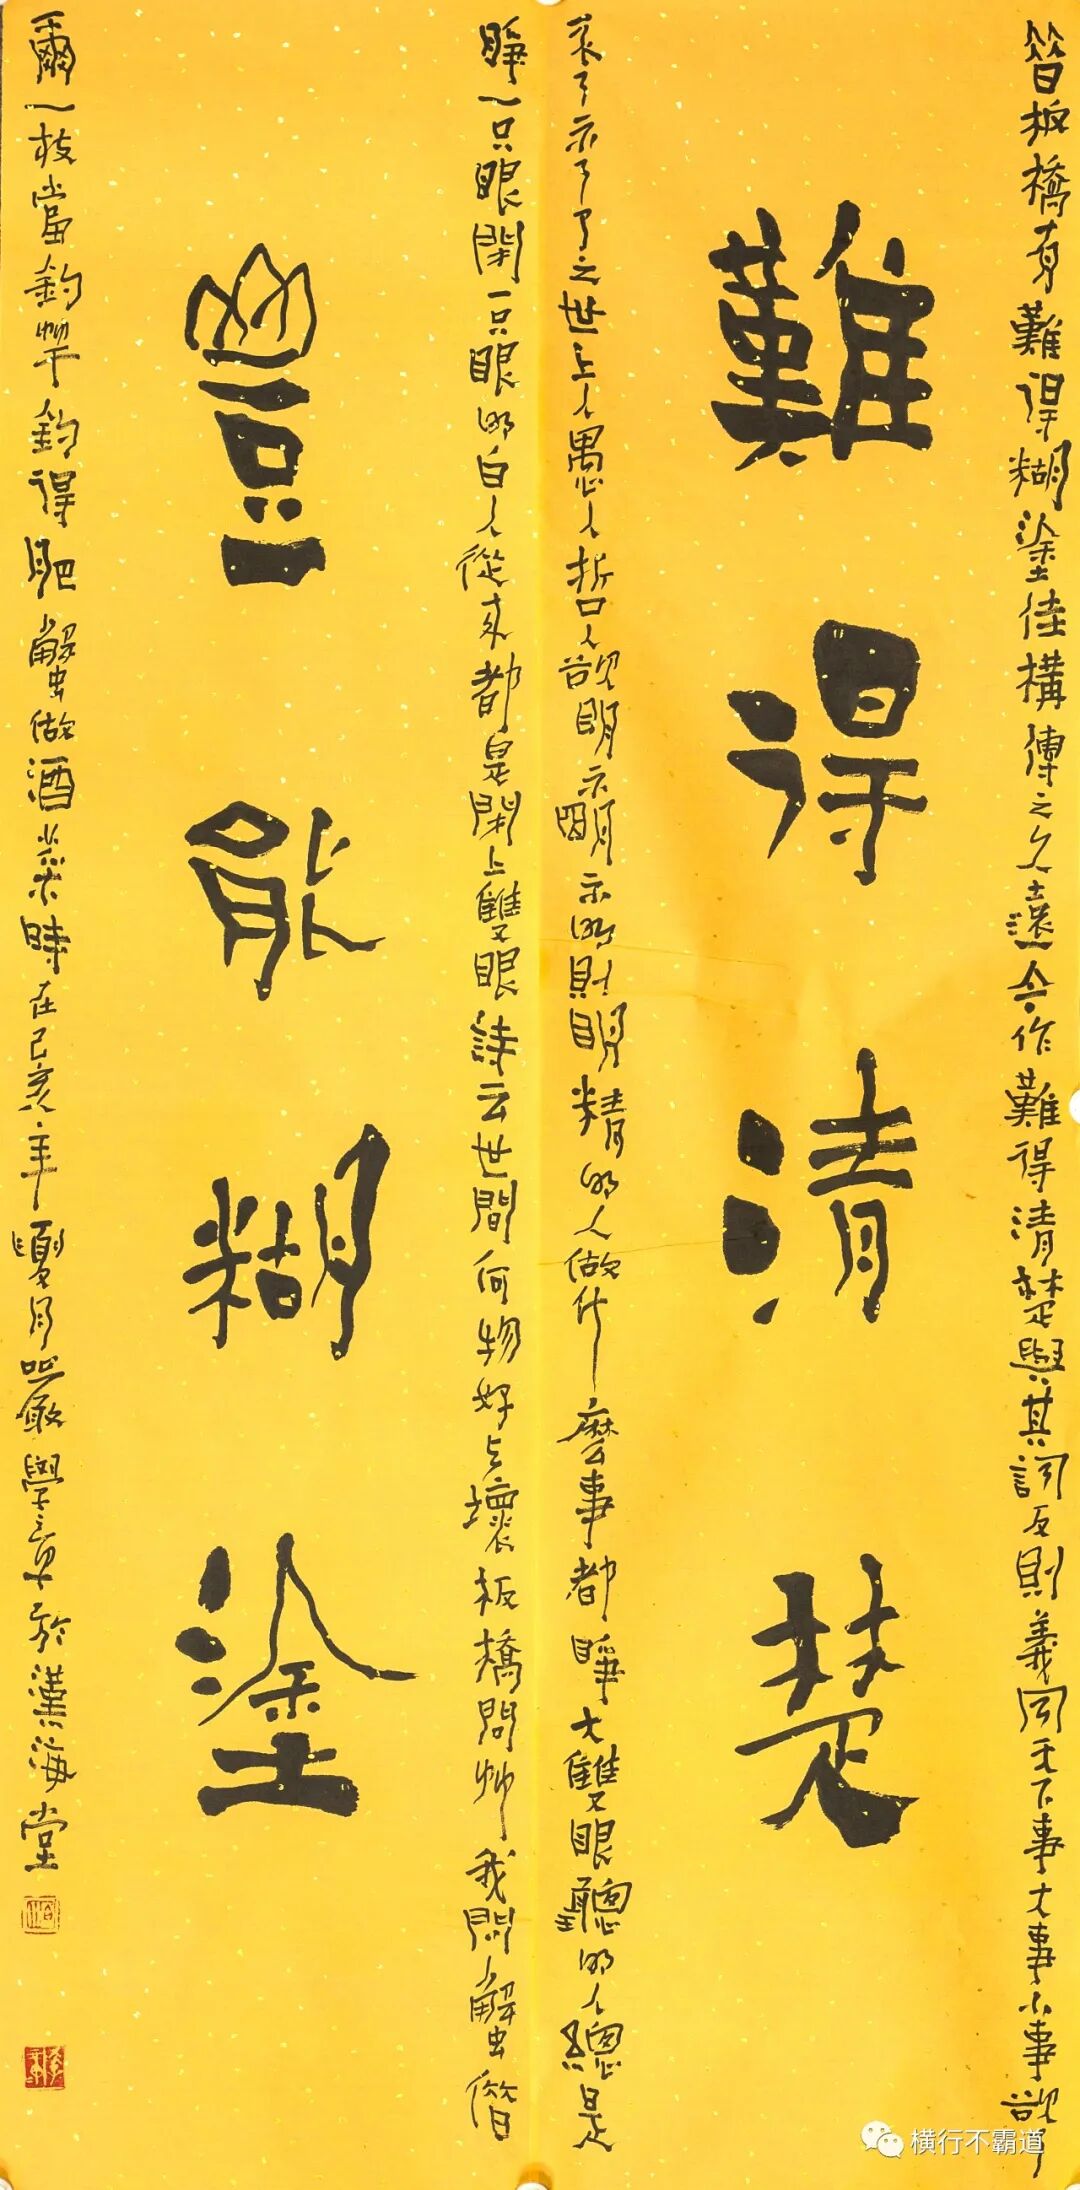 昔板橋有難得糊塗佳構傳之久遠今作難得清楚與其詞反則義同天下事大事小事欲了
難得清楚
未了亦了了之世上人愚人哲人欲明亦明亦明則明精明人做什麼事都睜大雙眼聰明人總是
睜一只眼閉一只眼明白人從來都是閉上雙眼詩云世間何物好与壞板橋問竹我問蟹借
豈能糊塗
爾一枝當釣竿釣得肥蟹做酒菜時在己亥年夏月嚴學章於漢海堂
横行不霸道